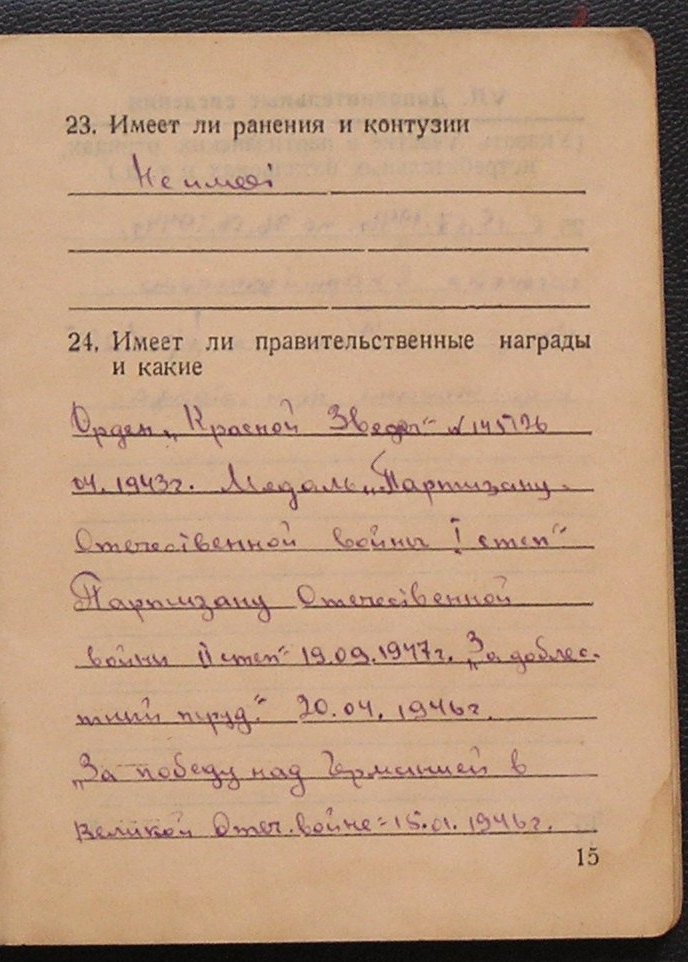 23. Имеет ли ранения и контузии
Не имеет
24. Имеет ли правительственные награды
и какие
Орден „Красной Звезды“ №145726
04.1943г. Медаль „Партизану
Отечественной войны I степ“
Партизану Отечественной
войны II степ“ 19.09.1947г. „За доблес-
тный труд“ 20.04.1946г.
„За победу над Германией в
Великой Отеч. войне“ 15.01.1946г.
15